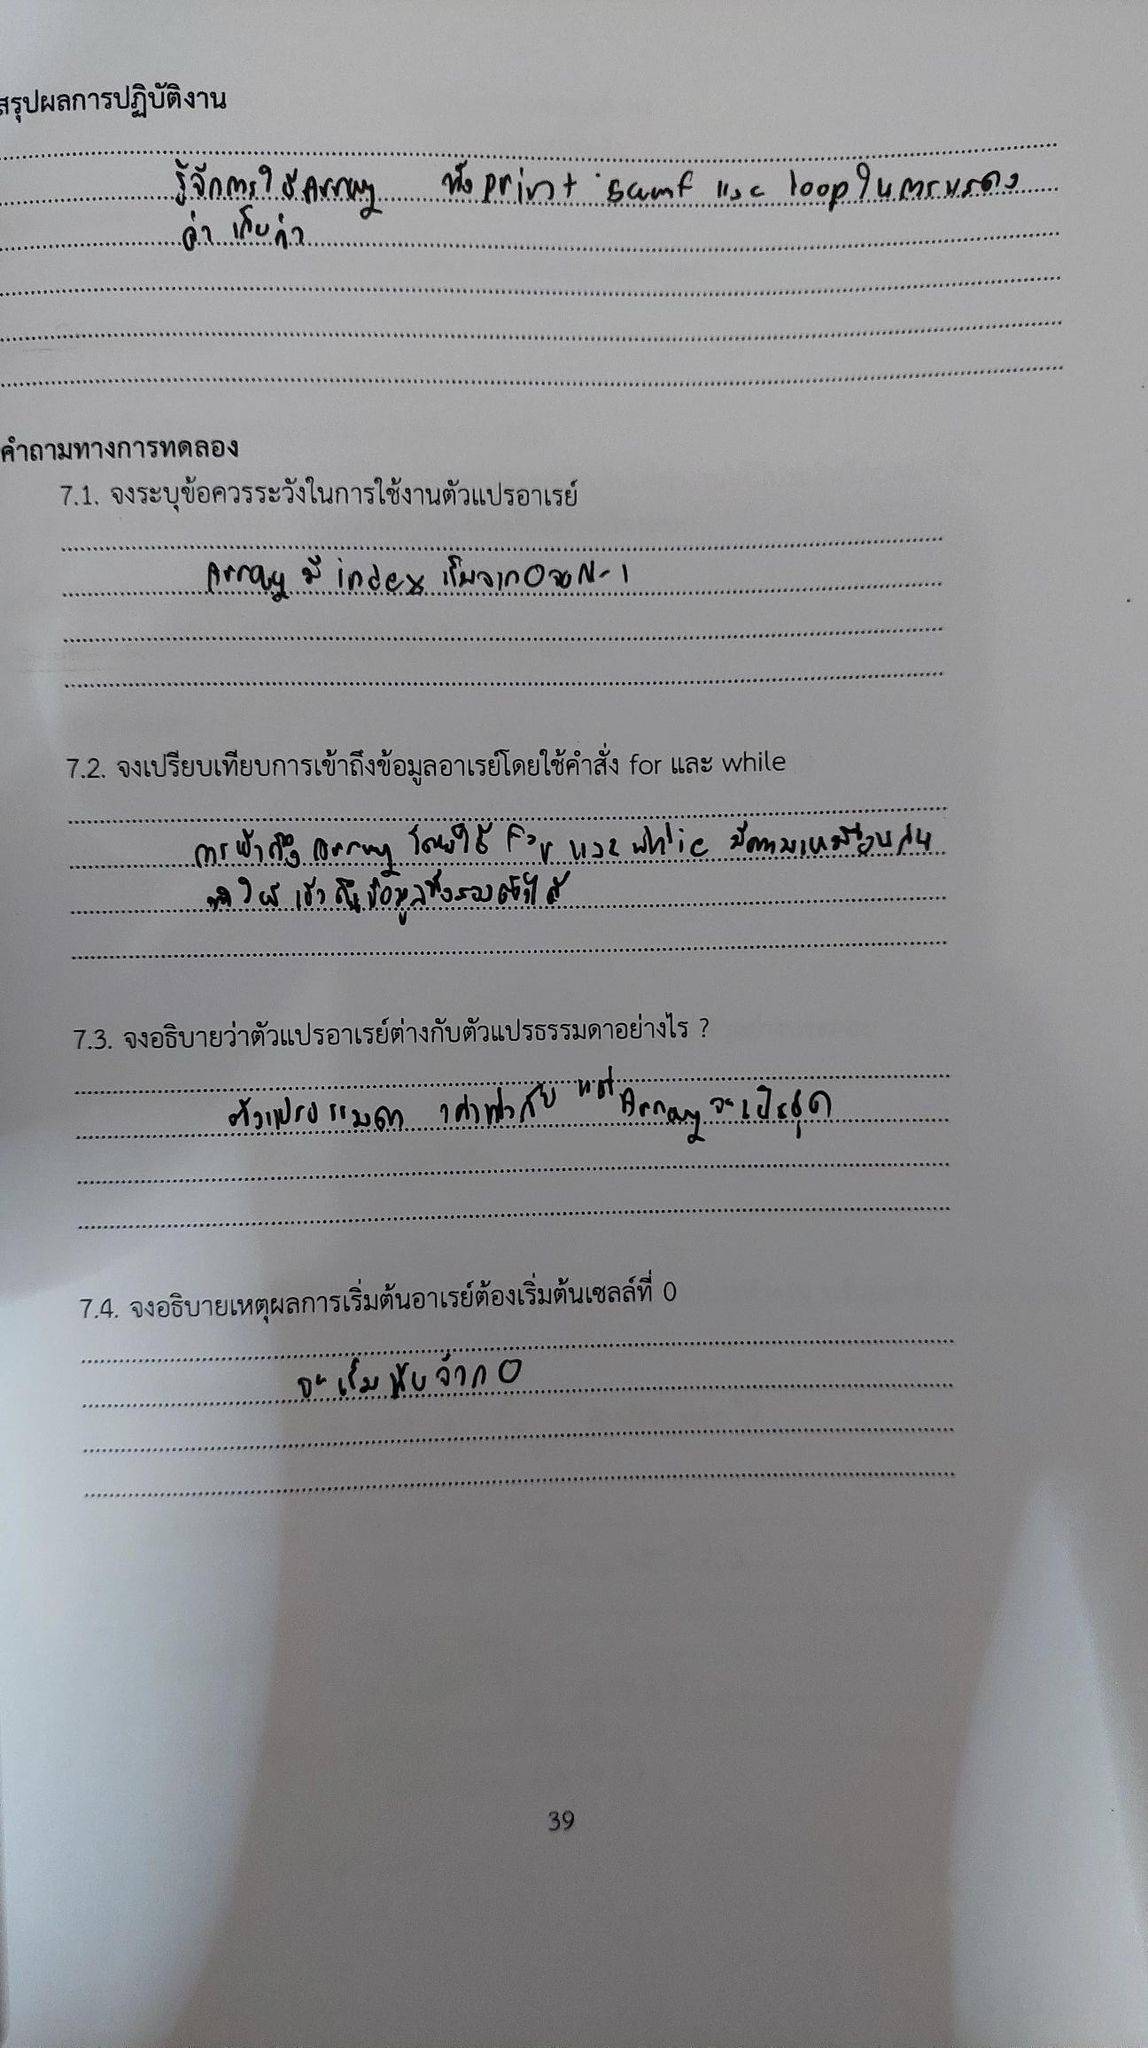 สรุปผลการปฏิบัติงาน
รู้จักการใช้ Array ทั้ง print scanf และ loop ในการแสดง
ค่า เก็บค่า
คำถามทางการทดลอง
7.1. จงระบุข้อควรระวังในการใช้งานตัวแปรอาเรย์
Array มี index เริ่มจาก 0 จน N-1
7.2. จงเปรียบเทียบการเข้าถึงข้อมูลอาเรย์โดยใช้คำสั่ง for และ while
การเข้าถึง array โดยใช้ For และ while มีความเหมือนกัน
ทำให้ เข้าถึงข้อมูลทั้งสองตัวได้
7.3. จงอธิบายว่าตัวแปรอาเรย์ต่างกับตัวแปรธรรมดาอย่างไร ?
ตัวแปรธรรมดา แต่ Array จะเป็นชุด
7.4. จงอธิบายเหตุผลการเริ่มต้นอาเรย์ต้องเริ่มต้นเซลล์ที่ 0
จะเริ่มนับจาก 0
39